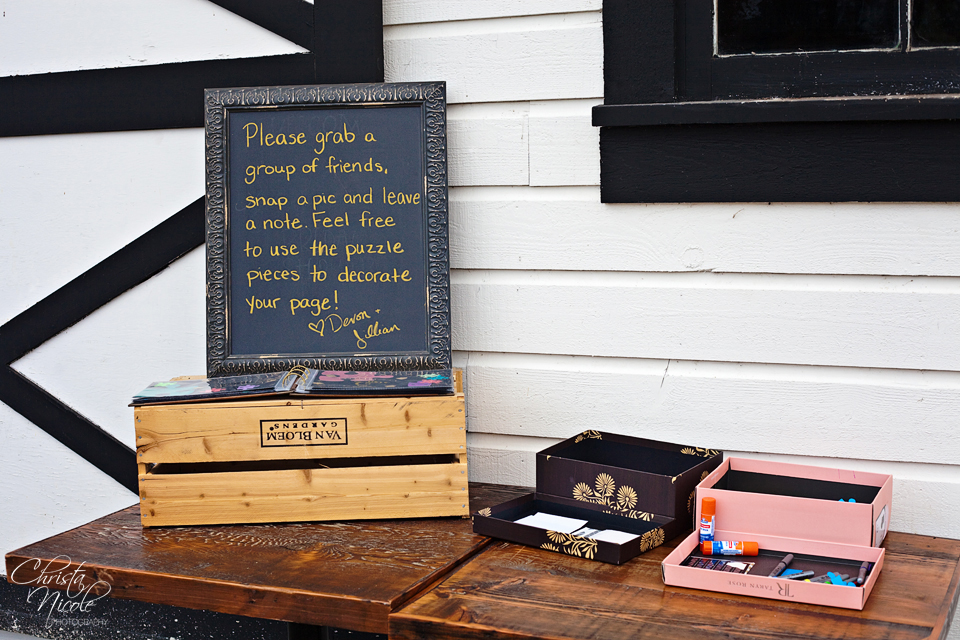 Please grab a
group of friends,
snap a pic and leave
a note. Feel free
to use the puzzle
pieces to decorate
your page!
♡ Devon +
Jillian
VAN BLOEM
GARDENS®
TR
TARYN ROSE
Christa
Nicole
PHOTOGRAPHY